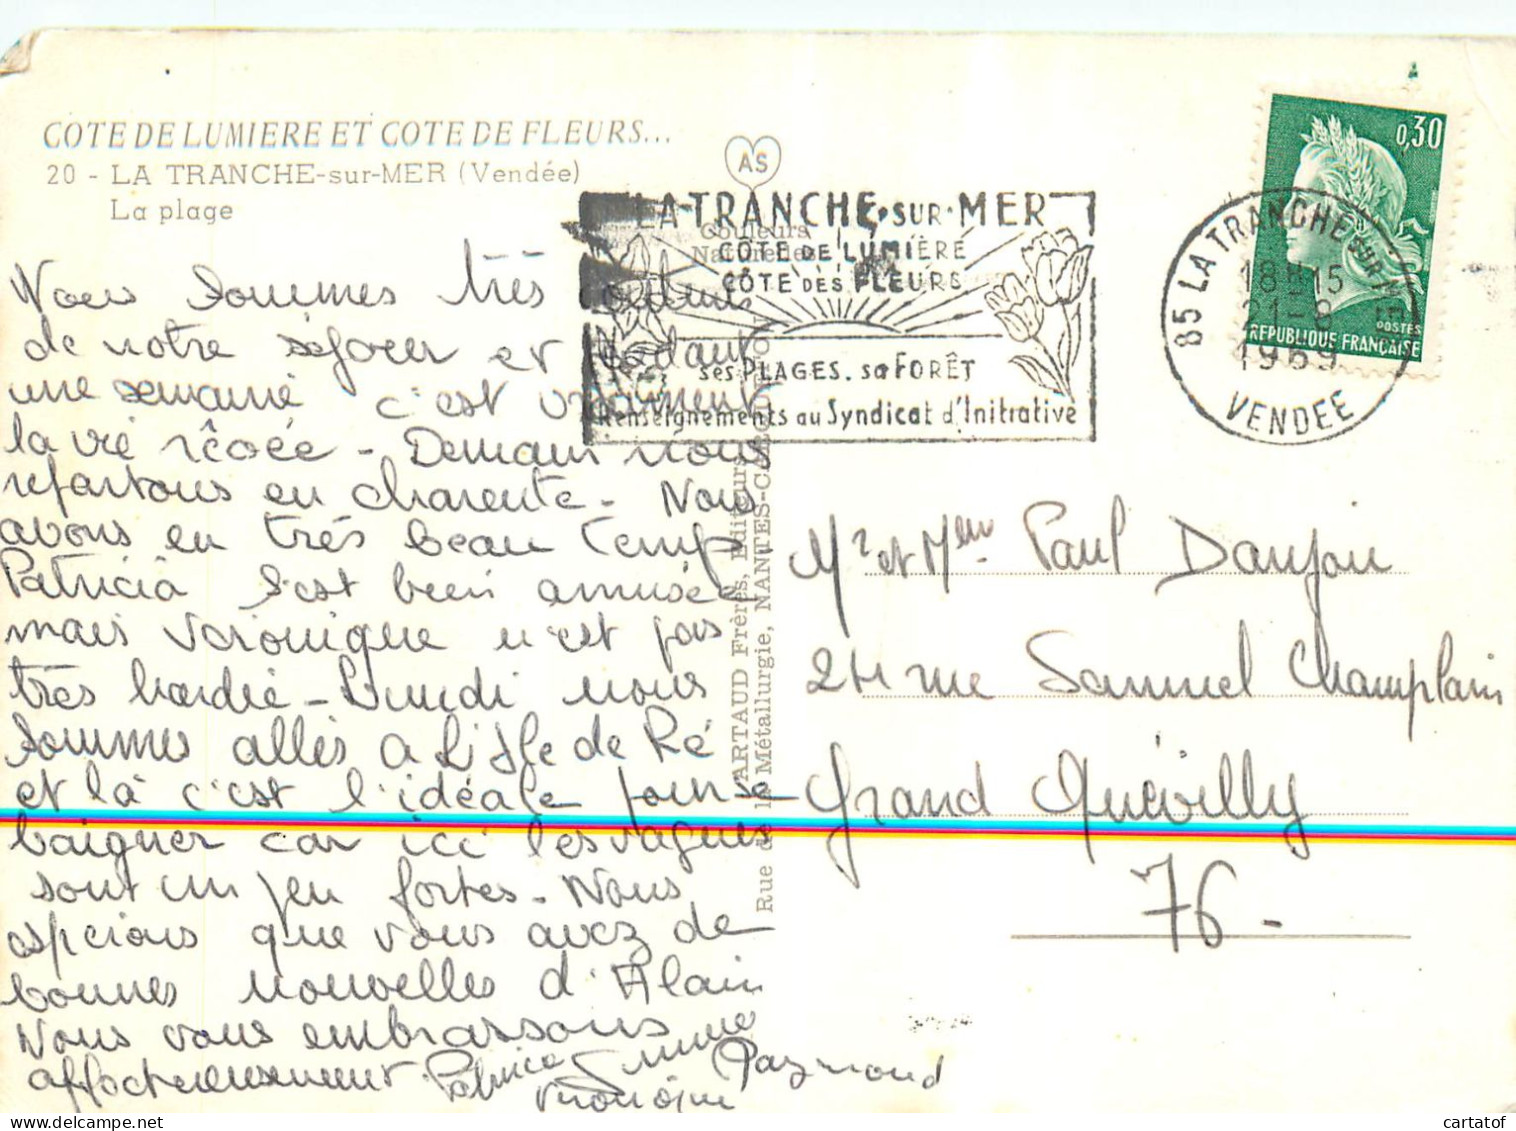 COTE DE LUMIERE ET COTE DE FLEURS...
20 - LA TRANCHE-sur-MER (Vendée)
La plage
AS
Couleurs
Naturelles
LA TRANCHE·SUR·MER
CÔTE DE LUMIÈRE
CÔTE DES FLEURS
ses PLAGES. sa FORÊT
Renseignements au Syndicat d'Initiative
0,30
POSTES
REPUBLIQUE FRANÇAISE
85 LA TRANCHE SUR MER
18H15
21-8
1969
VENDEE
Nous sommes très
de notre séjour et Pendant
une semaine c'est vraiment
la vie rêvée - Demain nous
repartons en charente - Nous
avons eu très beau temps
Patricia s'est bien amusée
mais Véronique n'est pas
très hardie - Lundi nous
sommes allés a L'Ile de Ré
et là c'est l'idéale pour se
baigner car ici les vagues
sont un peu fortes - Nous
espérions que vous avez de
bonnes nouvelles d'Alain
Nous vous embrassons
affectueusement. Patricia
Raymond
Véronique
ARTAUD Frères, Editeurs
Rue de la Métallurgie, NANTES-CARQUEFOU
Mr et Mme Paul Danjou
24 rue Samuel Champlain
Grand Quévilly
76 -
cartatof